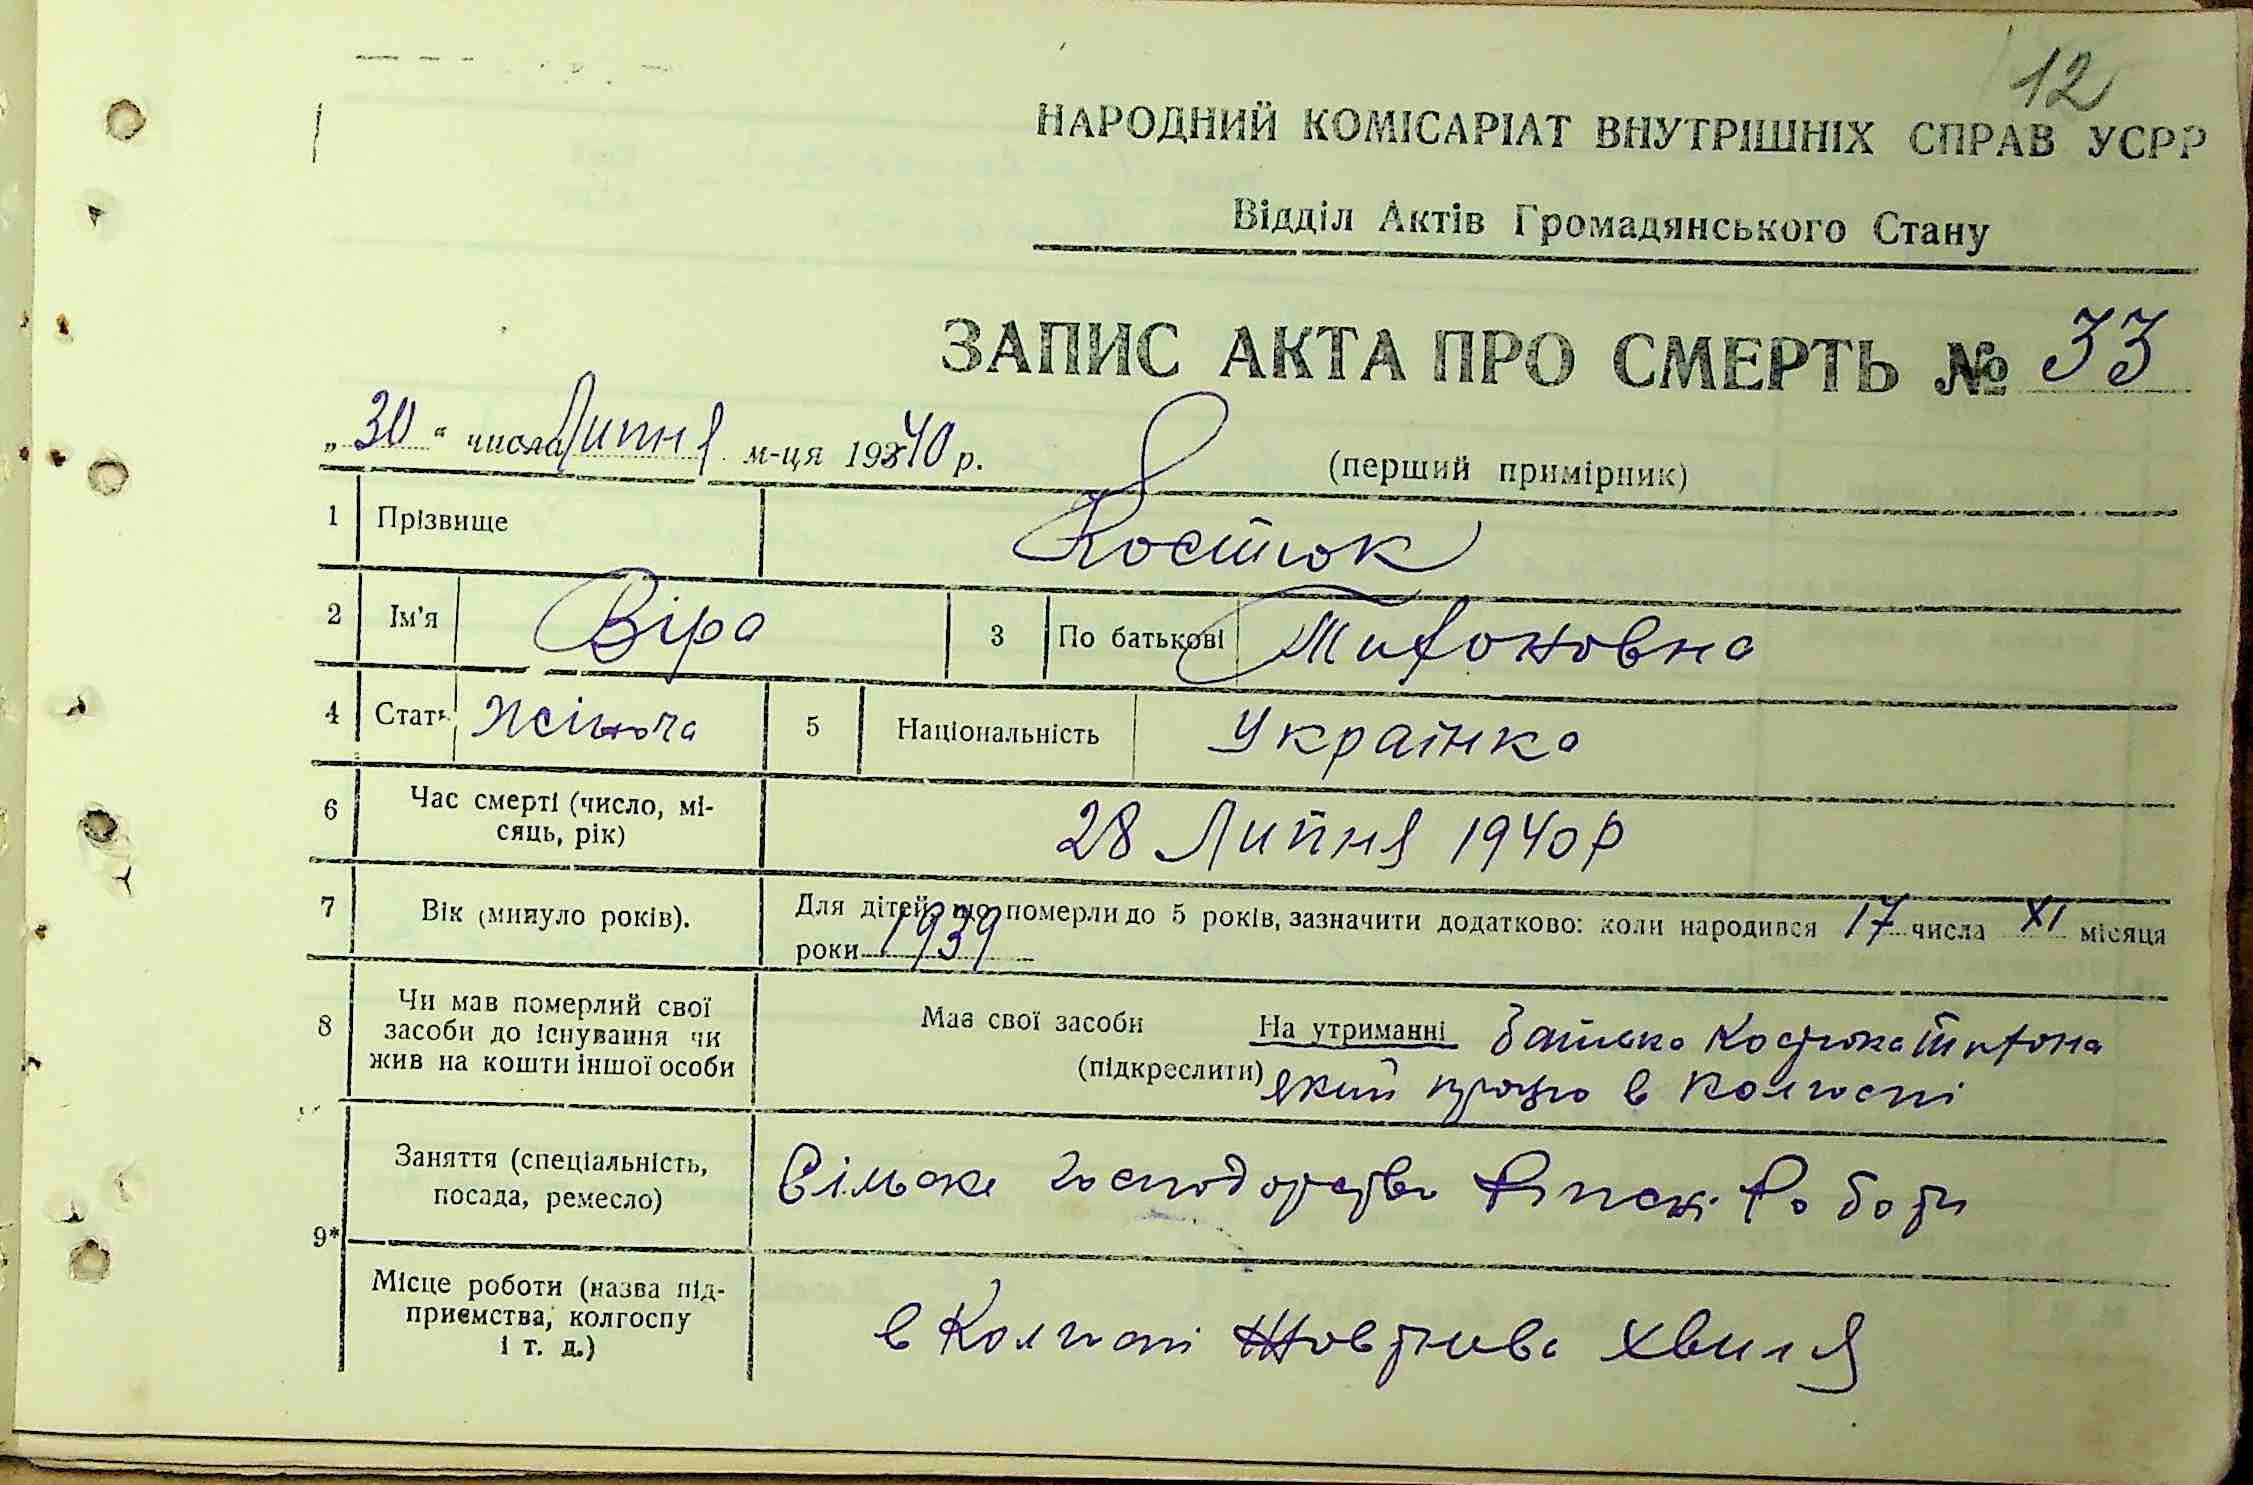 12
НАРОДНИЙ КОМІСАРІАТ ВНУТРІШНІХ СПРАВ УСРР
Відділ Актів Громадянського Стану
ЗАПИС АКТА ПРО СМЕРТЬ № 33
„30“ числа Липня м-ця 1940 р.
(перший примірник)
1 Прізвище Костюк
2 Ім'я Віра 3 По батькові Тихоновна
4 Стать Жіноча 5 Національність Українка
6 Час смерті (число, мі-
сяць, рік) 28 Липня 1940 р
7 Вік (минуло років). Для дітей, що померли до 5 років, зазначити додатково: коли народився 17 числа XI місяця
роки 1939
8 Чи мав померлий свої
засоби до існування чи
жив на кошти іншої особи
Має свої засоби На утриманні батька Костюка Тихона
(підкреслити) який працю в колгоспі
9* Заняття (спеціальність,
посада, ремесло)
Сільске господарство Роботи
Місце роботи (назва під-
приємства, колгоспу
і т. д.)
в Колгоспі Жовтнева хвиля